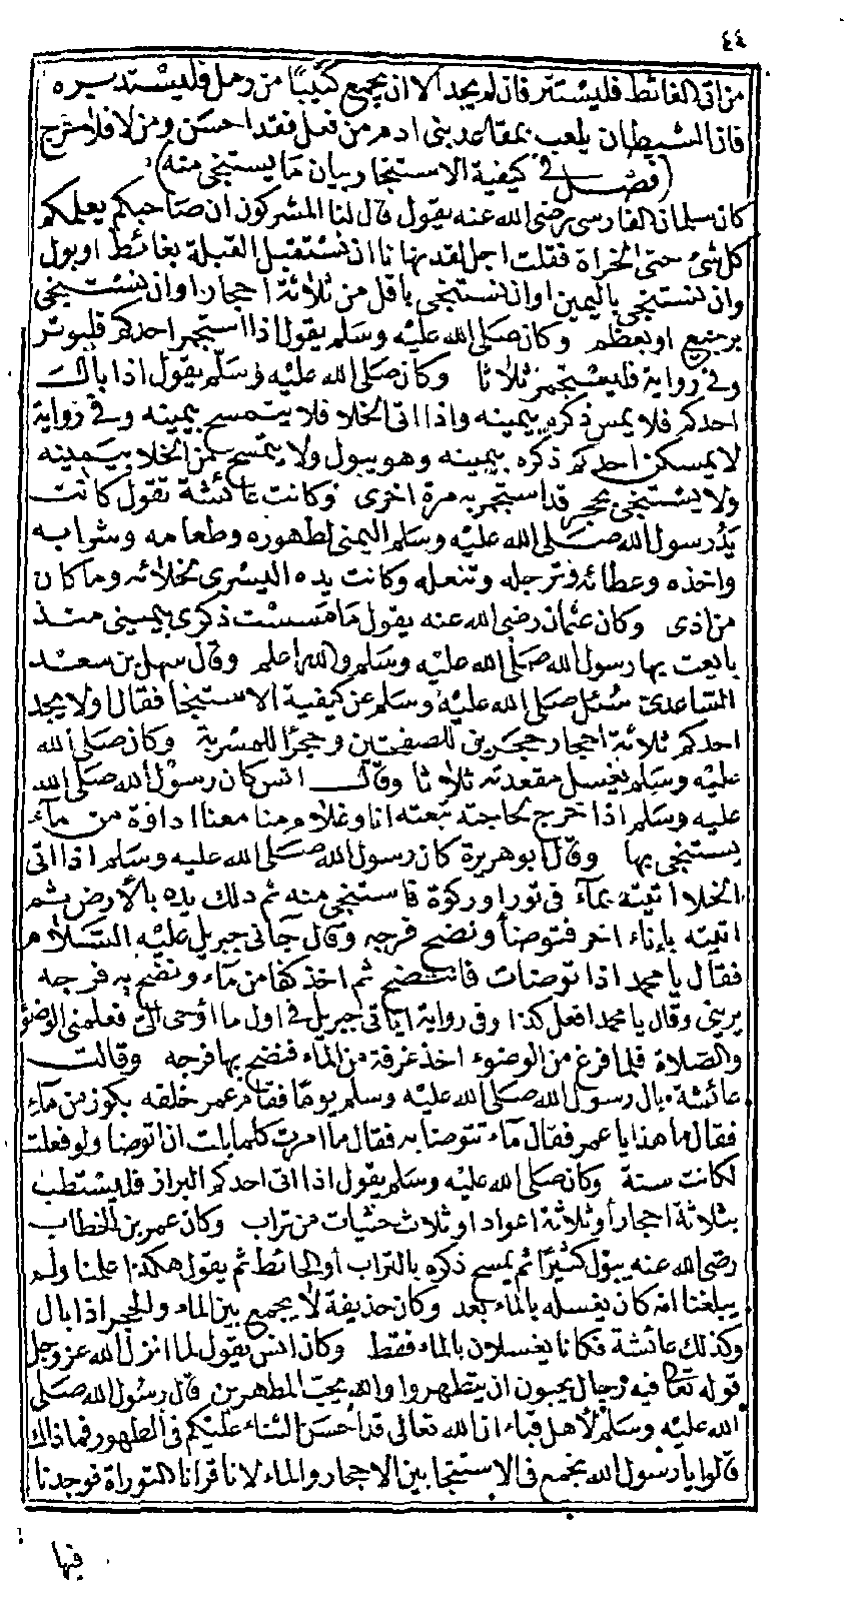 ٤٤
من اتى الغائط فليستتر فان لم يجد الا ان يجمع كثيبًا من رمل فليستديره
فان الشيطان يلعب بمقاعد بنى ادم من فعل فقد احسن ومن لا فلا حرج
(فصل فى كيفية الاستنجا وبيان ما يستنجى منه)
كان سلمان الفارسى رضى الله عنه يقول قال لنا المشركون ان صاحبكم يعلمكم
كل شئ حتى الخراة فقلت اجل لقد نهانا ان نستقبل القبلة بغائط او بول
وان نستنجى باليمين او ان نستنجى باقل من ثلاثة احجار او ان نستنجى
برجيع او بعظم وكان صلى الله عليه وسلم يقول اذا استجمر احدكم فليوتر
وفى رواية فليستجمر ثلاثا وكان صلى الله عليه وسلم يقول اذا بال
احدكم فلا يمس ذكره بيمينه واذا اتى الخلا فلا يتمسح بيمينه وفى رواية
لا يمسكن احدكم ذكره بيمينه وهو يبول ولا يتمسح من الخلا بيمينه
ولا يستنجى بحجر قد استجمر به مرة اخرى وكانت عائشة تقول كانت
يد رسول الله صلى الله عليه وسلم اليمنى لطهوره وطعامه وشرابه
واخذه وعطائه وترجله وتنعله وكانت يده اليسرى لخلائه وما كان
من اذى وكان عثمان رضى الله عنه يقول ما مسست ذكرى بيمينى منذ
بايعت بها رسول الله صلى الله عليه وسلم والله اعلم وقال سهل بن سعد
الساعدى سئل صلى الله عليه وسلم عن كيفية الاستنجا فقال اولا يجد
احدكم ثلاثة احجار حجرين للصفحتين وحجرًا للمسربة وكان صلى الله
عليه وسلم يغسل مقعدته ثلاثا وقال انس كان رسول الله صلى الله
عليه وسلم اذا خرج لحاجته تبعته انا وغلام منا معنا اداوة من مآء
يستنجى بها وقال ابو هريرة كان رسول الله صلى الله عليه وسلم اذا اتى
الخلا اتيته بمآء فى تور او ركوة فاستنجى منه ثم دلك يده بالأرض ثم
اتيته بإناء اخر فتوضأ ونضح فرجه وقال جآنى جبريل عليه السلام
فقال يا محمد اذا توضات فانتضح ثم اخذ كفا من مآء ونضح به فرجه
يرينى وقال يا محمد افعل كذا وفى رواية اتانى جبريل فى اول ما اوحى الىّ فعلمنى الوضؤ
والصلاة فلما فرغ من الوضوء اخذ غرفة من الماء فنضح بها فرجه وقالت
عائشة بال رسول الله صلى الله عليه وسلم يومًا فقام عمر خلفه بكوز من مآء
فقال ما هذا يا عمر فقال مآء تتوضا به فقال ما امرت كلما بلت ان اتوضا ولو فعلت
لكانت سنة وكان صلى الله عليه وسلم يقول اذا اتى احدكم البراز فليستطب
بثلاثة احجار او ثلاثة اعواد او ثلاث حثيات من تراب وكان عمر بن الخطاب
رضى الله عنه يبول كثيرًا ثم يمسح ذكره بالتراب او الحائط ثم يقول هكذا علمنا ولم
يبلغنا انه كان يغسله بالماء بعد وكان حذيفة لا يجمع بين الماء والحجر اذا بال
وكذلك عائشة فكانا يغسلان بالماء فقط وكان انس يقول لما انزل الله عز وجل
قوله تعالى فيه رجال يحبون ان يتطهروا والله يحب المطهرين قال رسول الله صلى
الله عليه وسلم لأهل قباء ان الله تعالى قد احسن الثناء عليكم فى الطهور فما ذاك
قالوا يا رسول الله نجمع فى الاستنجا بين الاحجار والماء لانا قرانا التوراة فوجدنا
فيها